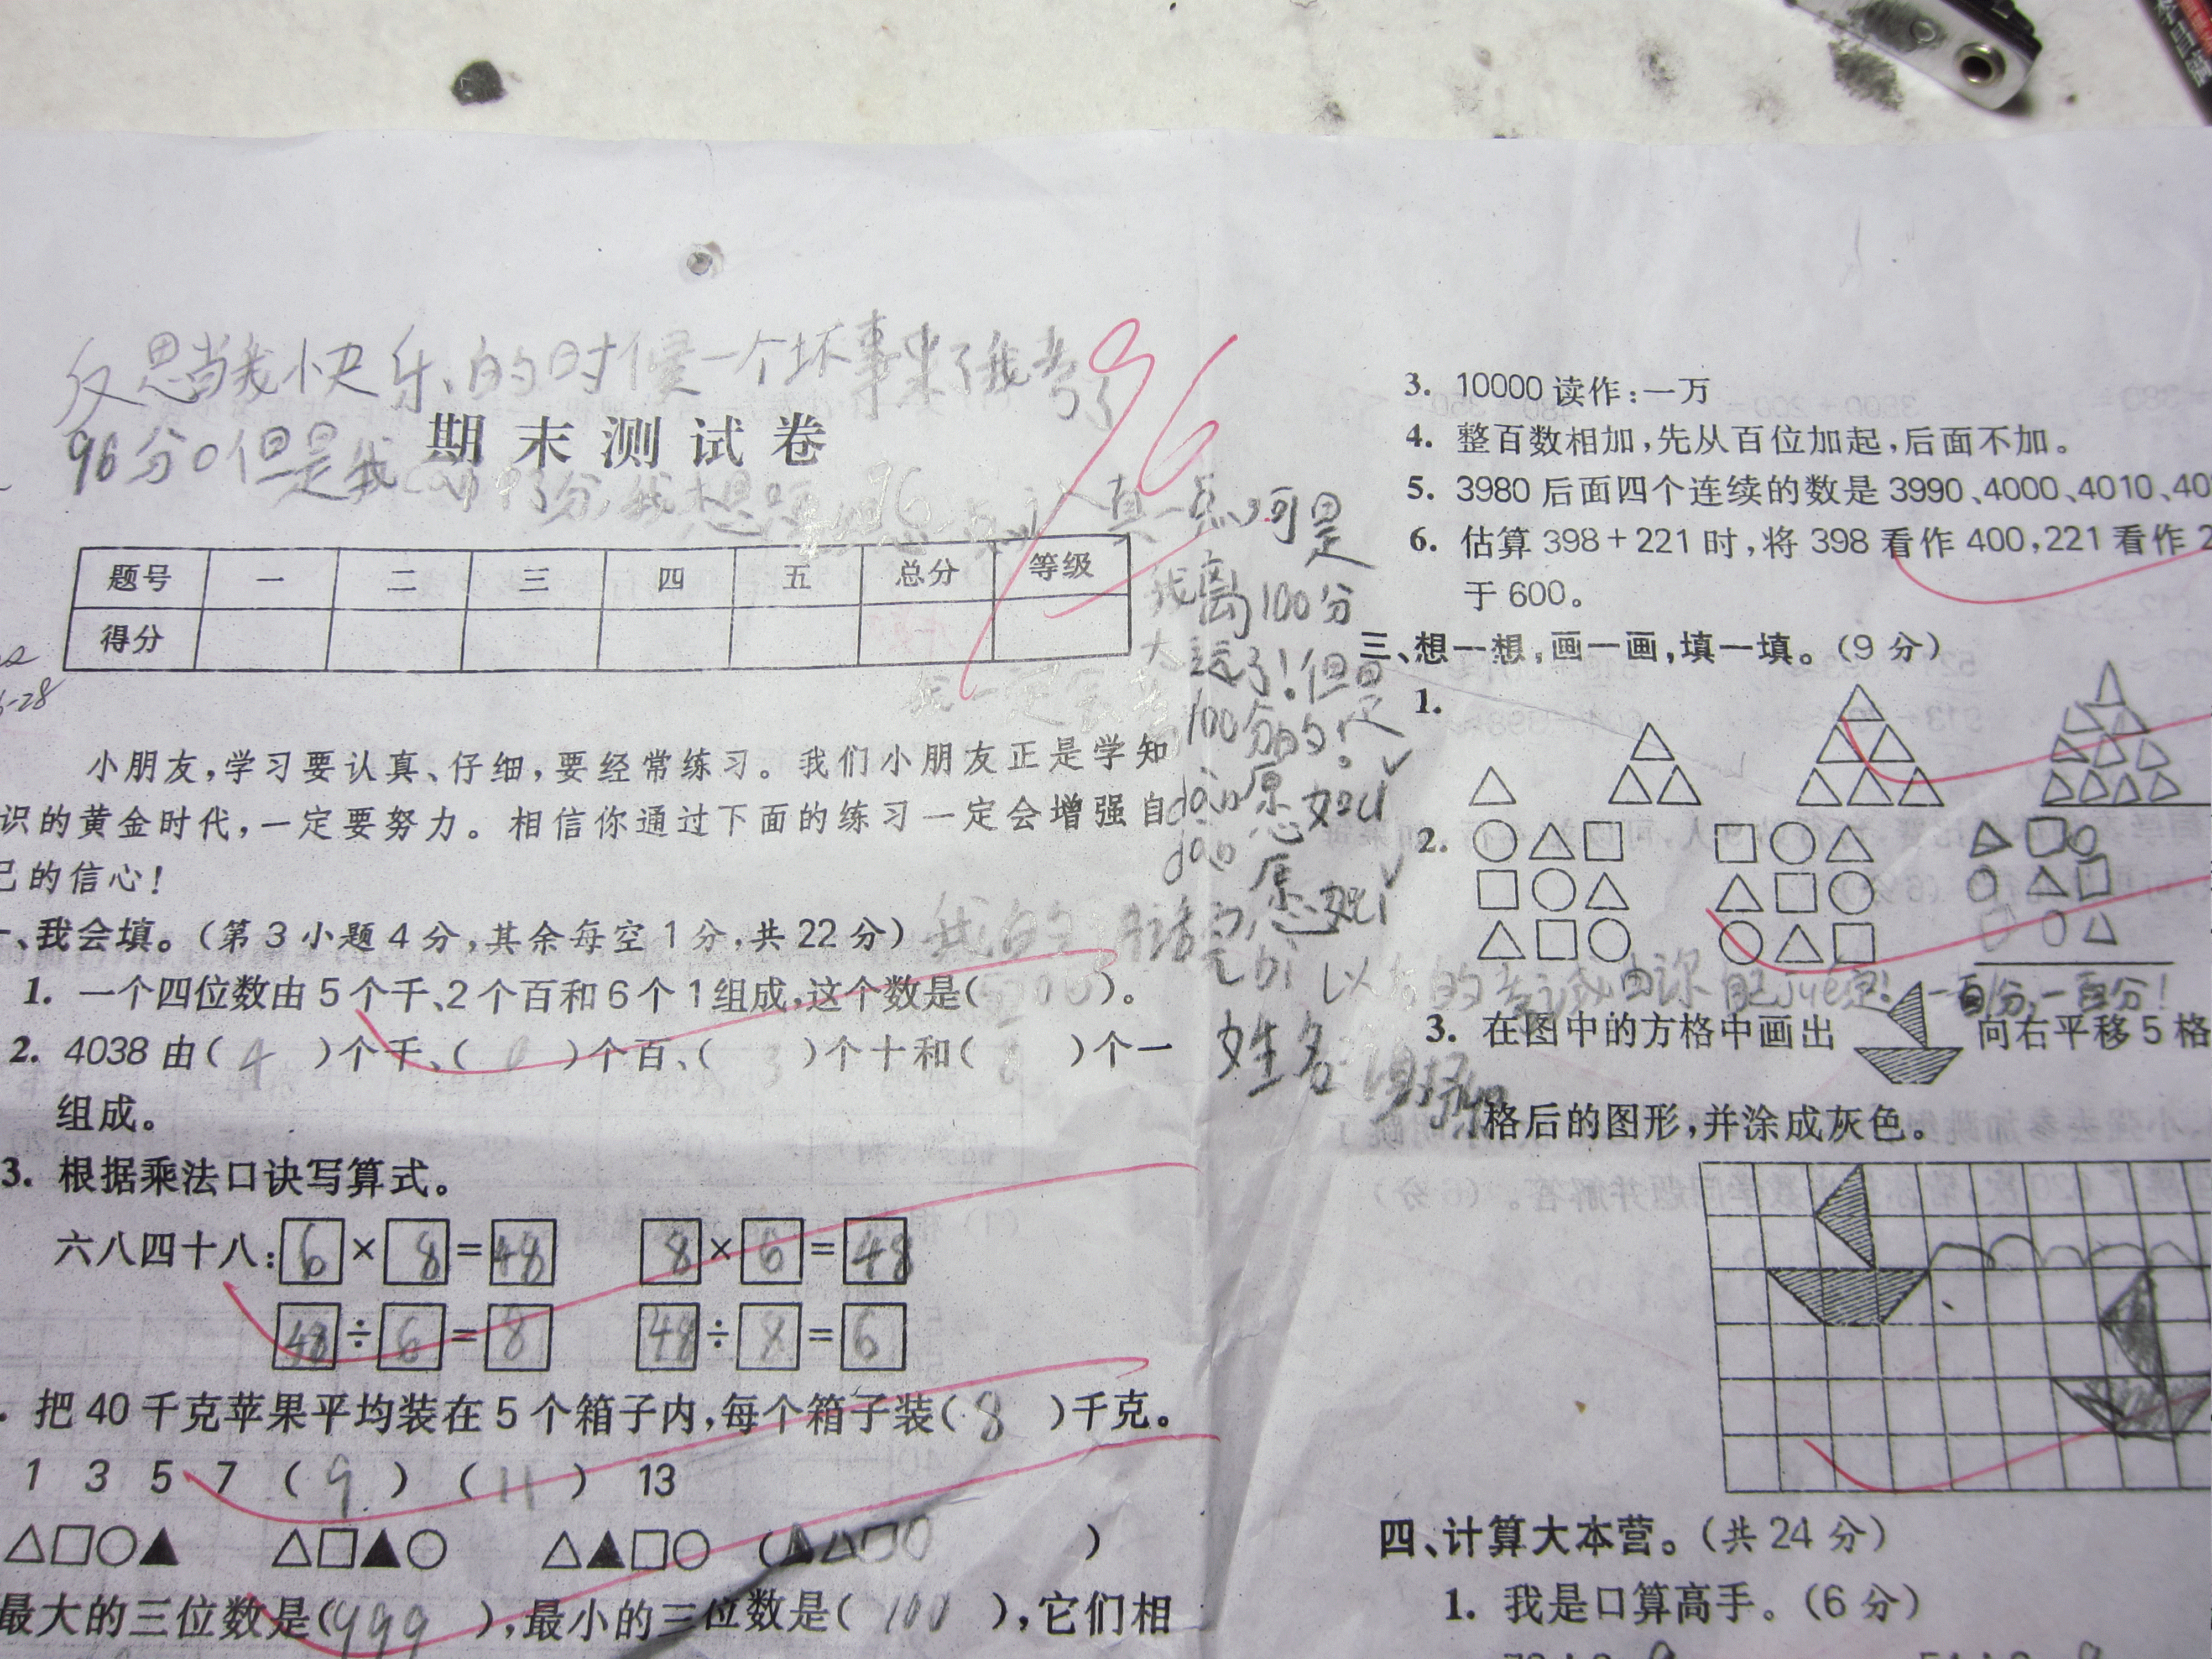 反思当我快乐的时候一个坏事来了我考了
96分。但是我
96
期末测试卷
真一点,可是
我离100分
太远了!但是
100分的!
愿如
愿
题号 一 二 三 四 五 总分 等级
得分
6-28
小朋友,学习要认真、仔细,要经常练习。我们小朋友正是学知
识的黄金时代,一定要努力。相信你通过下面的练习一定会增强自
己的信心!
一、我会填。(第3小题4分,其余每空1分,共22分)
1. 一个四位数由5个千、2个百和6个1组成,这个数是( )。
2. 4038由( 4 )个千、( 0 )个百、( 3 )个十和( 8 )个一
组成。
3. 根据乘法口诀写算式。
六八四十八: 6 × 8 = 48 8 × 6 = 48
48 ÷ 6 = 8 48 ÷ 8 = 6
. 把40千克苹果平均装在5个箱子内,每个箱子装( 8 )千克。
1 3 5 7 ( 9 ) ( 11 ) 13
△□○▲ △□▲○ △▲□○ (▲△□○ )
最大的三位数是(999 ),最小的三位数是( 100 ),它们相
3. 10000读作:一万
4. 整百数相加,先从百位加起,后面不加。
5. 3980后面四个连续的数是3990、4000、4010、40
6. 估算398+221时,将398看作400,221看作2
于600。
三、想一想,画一画,填一填。(9分)
1.
2.
以后的考试由你自jue定! 一百分,一百分!
姓名
3. 在图中的方格中画出 向右平移5格
格后的图形,并涂成灰色。
四、计算大本营。(共24分)
1. 我是口算高手。(6分)